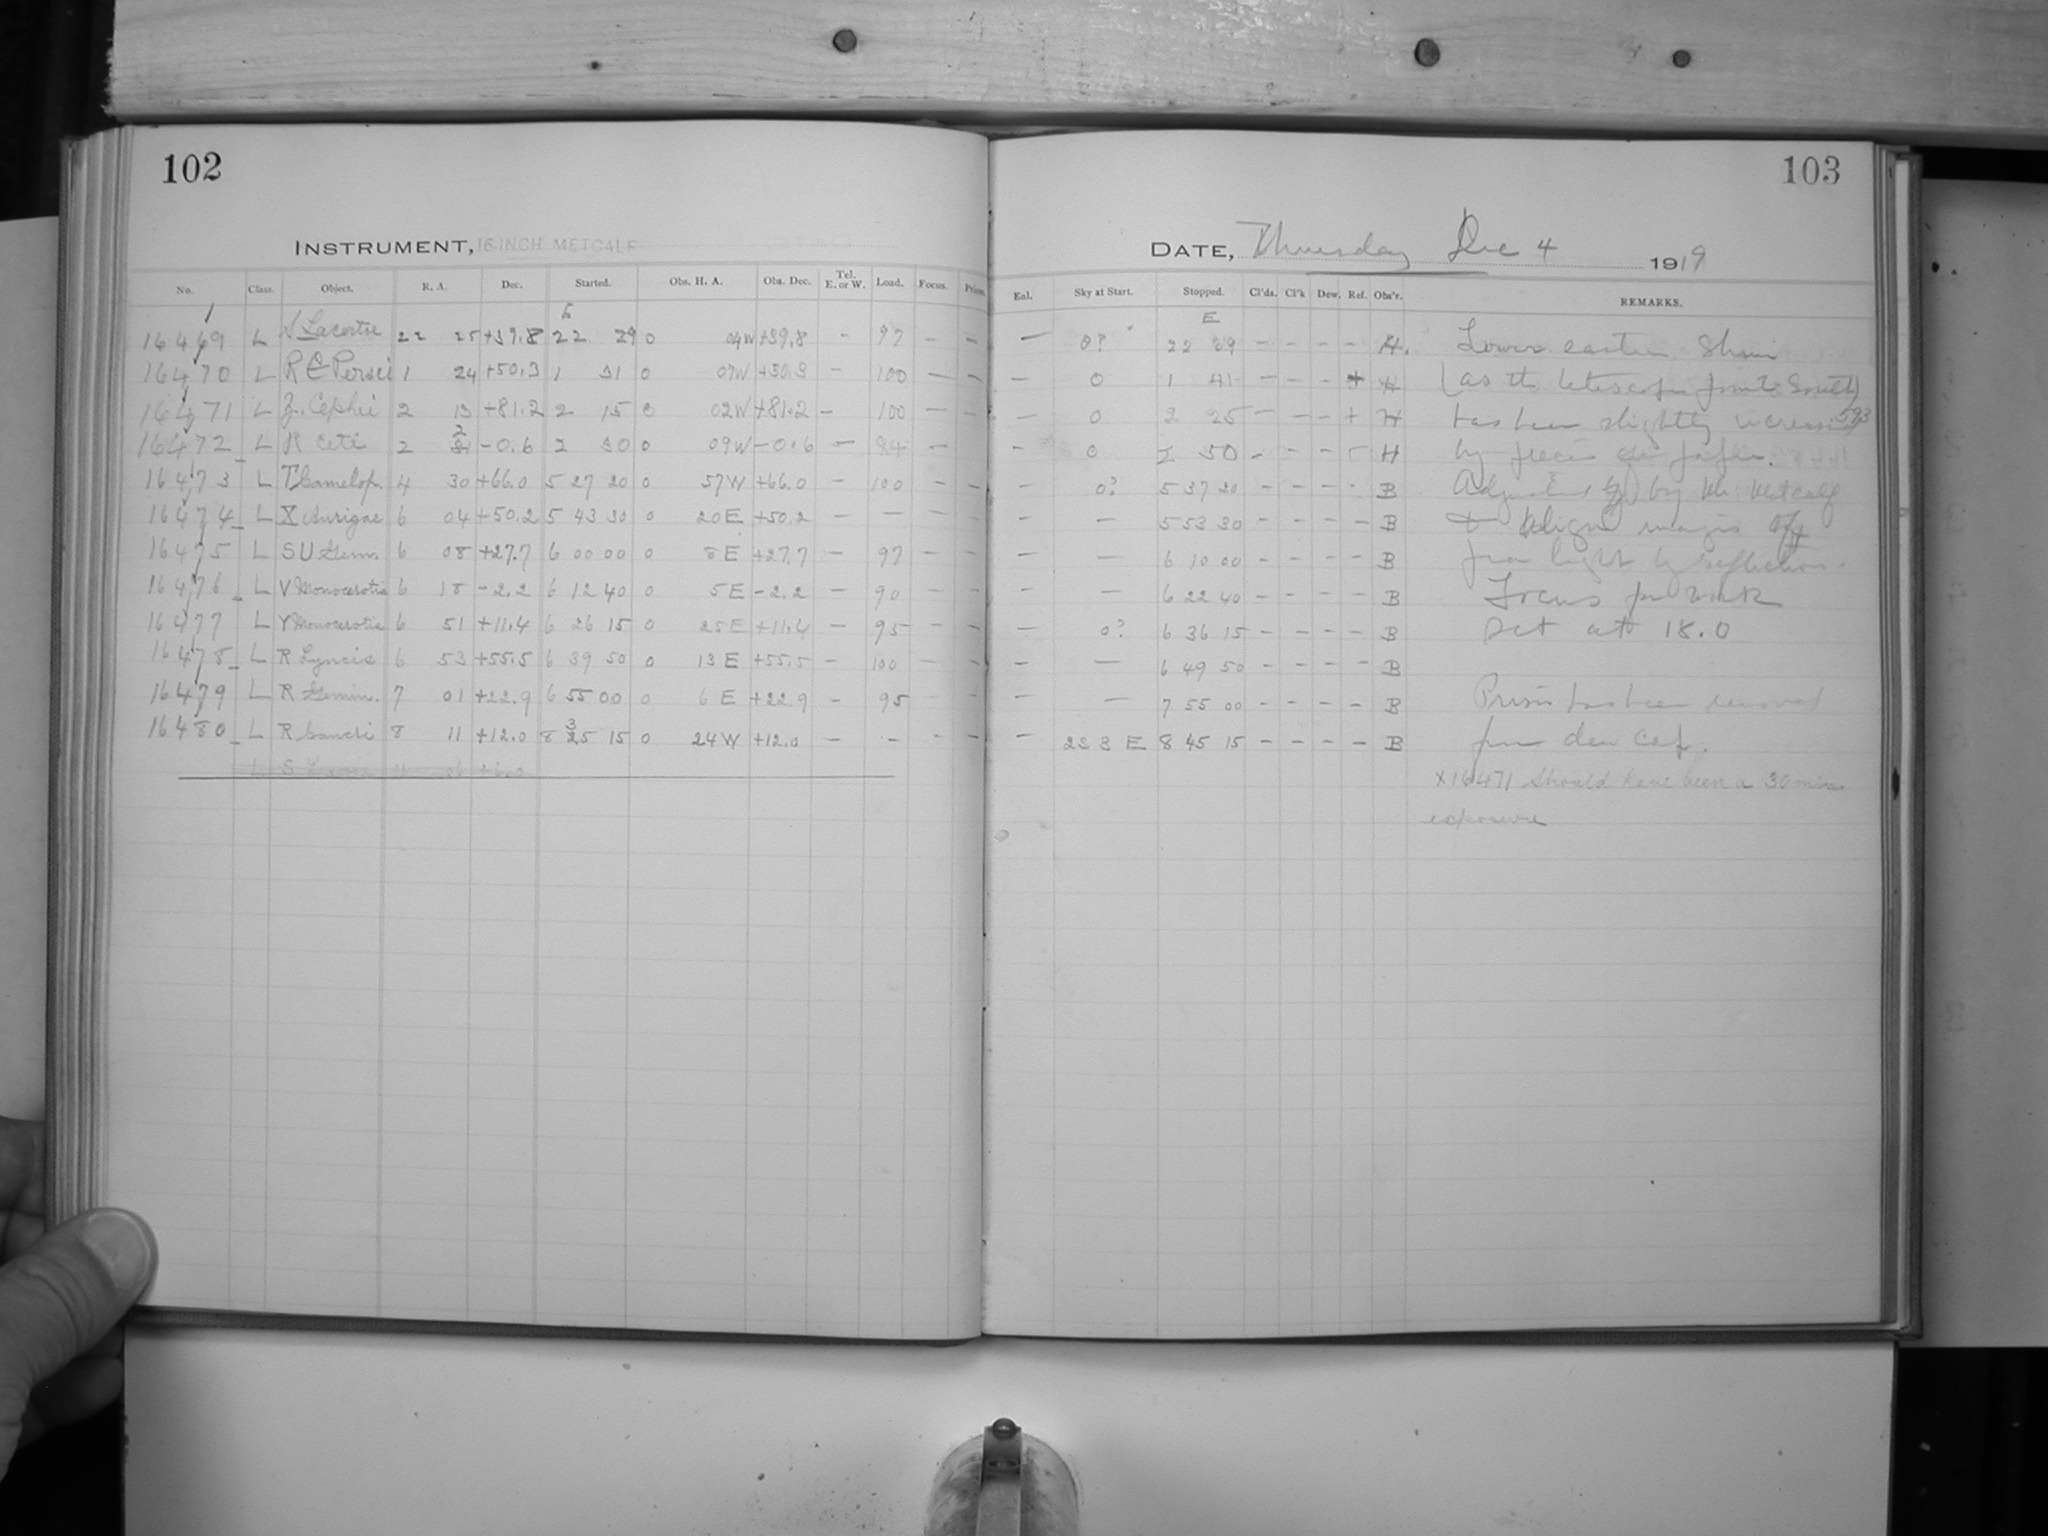 102
INSTRUMENT, 16 INCH METCALF
No. Class. Object. R. A. Dec. Started. Obs. H. A. Obs. Dec. Tel. E. or W. Load. Focus. Prism.
16469 L S Lacertæ 22 25 +39.8 22 29 0 04W +39.8 - 97 - -
16470 L R Persei 1 24 +50.3 1 31 0 07W +50.3 - 100 - -
16471 L Z. Cephei 2 13 +81.2 2 15 0 02W +81.2 - 100 - -
16472 L R Ceti 2 21 -0.6 2 30 0 09W -0.6 - 84 - -
16473 L T Camelop. 4 30 +66.0 5 27 20 0 57W +66.0 - 100 - -
16474 L X Aurigae 6 04 +50.2 5 43 30 0 20E +50.2 - - - -
16475 L SU Gem. 6 08 +27.7 6 00 00 0 8E +27.7 - 97 - -
16476 L V Monocerotis 6 18 -2.2 6 12 40 0 5E -2.2 - 90 - -
16477 L Y Monocerotis 6 51 +11.4 6 26 15 0 25E +11.4 - 95 - -
16478 L R Lyncis 6 53 +55.5 6 39 50 0 13E +55.5 - 100 - -
16479 L R Gemin. 7 01 +22.9 6 55 00 0 6E +22.9 - 95 - -
16480 L R Cancri 8 11 +12.0 8 35 15 0 24W +12.0 - - - -
103
DATE, Thursday Dec 4 1919
Enl. Sky at Start. Stopped. Cl'ds. Cl'k Dew. Ref. Obs'r. REMARKS.
E
- 0? 22 39 - - - - H. Lower eastern Shim
- 0 1 41 - - - + H (as the telescope points South)
- 0 2 25 - - - + H has been slightly increased 593
- 0 2 50 - - - - H by piece of paper.
- 0? 5 37 20 - - - - B Adjusted by Mr. Metcalf
- - 5 53 30 - - - - B to align images
- - 6 10 00 - - - - B from light by reflection.
- - 6 22 40 - - - - B Focus for work
- 0? 6 36 15 - - - - B Set at 18.0
- - 6 49 50 - - - - B
- - 7 55 00 - - - - B Prism has been removed
- 23 3 E 8 45 15 - - - - B from dew cap.
x16471 Should have been a 30 min.
exposure